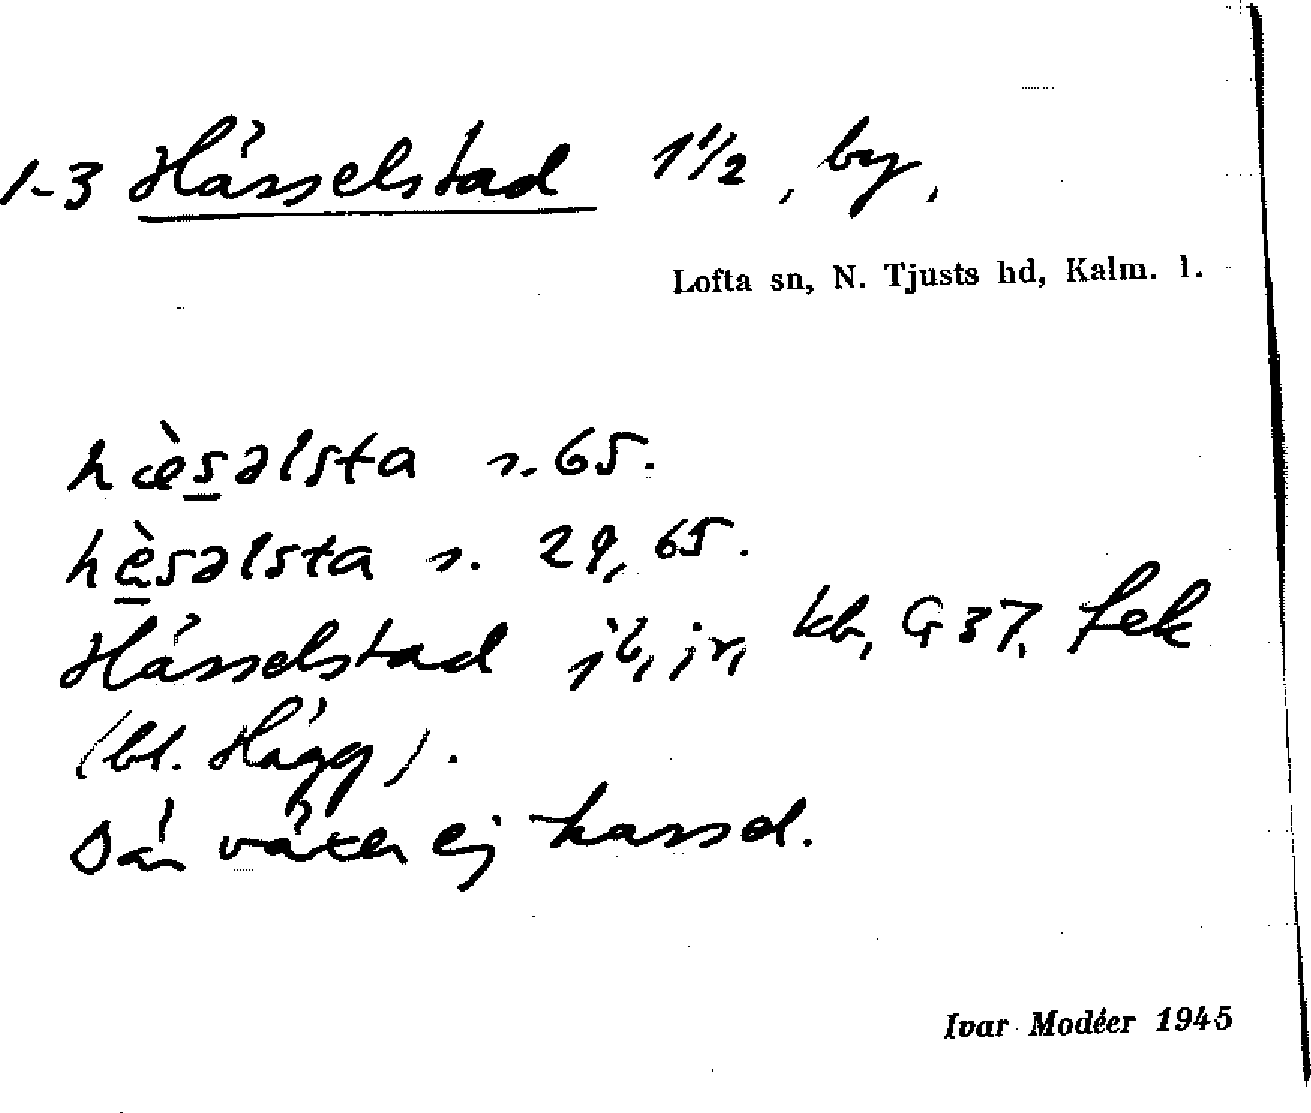 1-3 Hässelstad 1 1/2, by,
Lofta sn, N. Tjusts hd, Kalm. l.
hæ̀s̲əlsta s. 65.
hè̲səlsta s. 29, 65.
Hässelstad jb, jr, kb, G 37, fek
(bl. Hägg).
Där växer ej hassel.
Ivar Modéer 1945